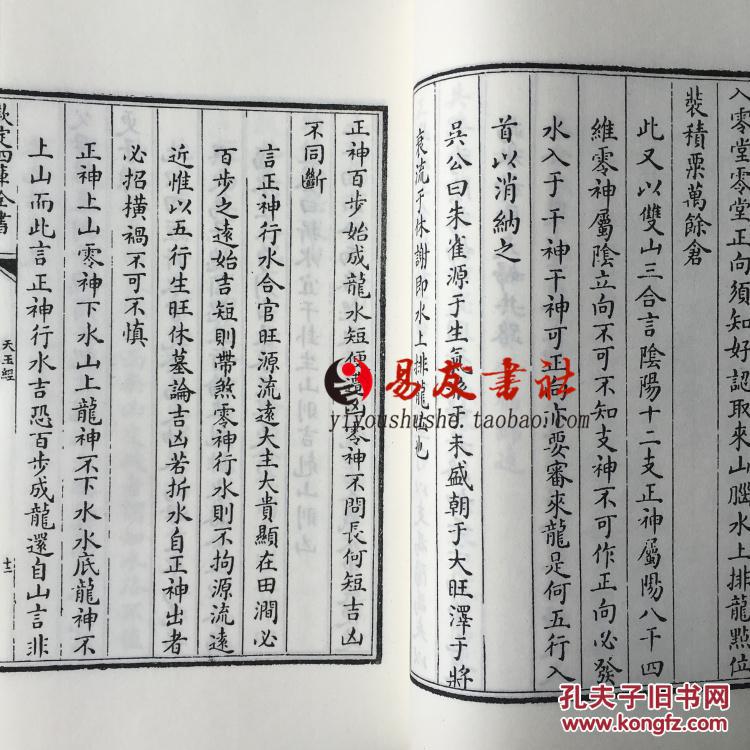 入零堂零堂正向須知好認取來山腦水上排龍點位
裝積粟萬餘倉
此又以雙山三合言陰陽十二支正神屬陽八干四
維零神屬陰立向不可不知支神不可作正向必發
水入于干神干神可正向亦要審來龍是何五行入
首以消納之
吳公曰朱雀源于生氣派于未盛朝于大旺澤于將
衰流于休謝即水上排龍
也
正神百步始成龍水短便
零神不問長何短吉凶
不同斷
言正神行水合官旺源流遠大主大貴顯在田澗必
百步之遠始吉短則帶煞零神行水則不拘源流遠
近惟以五行生旺休墓論吉凶若折水自正神出者
必招橫禍不可不慎
正神上山零神下水山上龍神不下水水底龍神不
上山而此言正神行水吉恐百步成龍還自山言非
欽定四庫全書
天玉經
十二
易友書社
yiyoushushe.taobao.com
孔夫子旧书网
www.kongfz.com